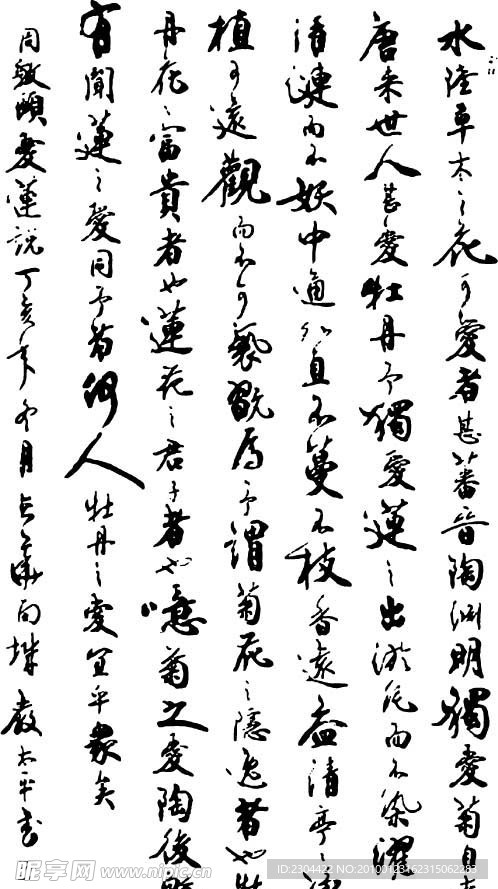 水陸草木之花可愛者甚蕃晉陶淵明獨愛菊自
唐來世人甚愛牡丹予獨愛蓮之出淤泥而不染濯
清漣而不妖中通外直不蔓不枝香遠益清亭
植可遠觀而不可褻翫焉予謂菊花之隱逸者也牡
丹花之富貴者也蓮花之君子者也噫菊之愛陶後
有聞蓮之愛同予者何人牡丹之愛宜乎衆矣
周敦頤愛蓮說丁亥年冬月太平書
昵享网 www.nipic.cn